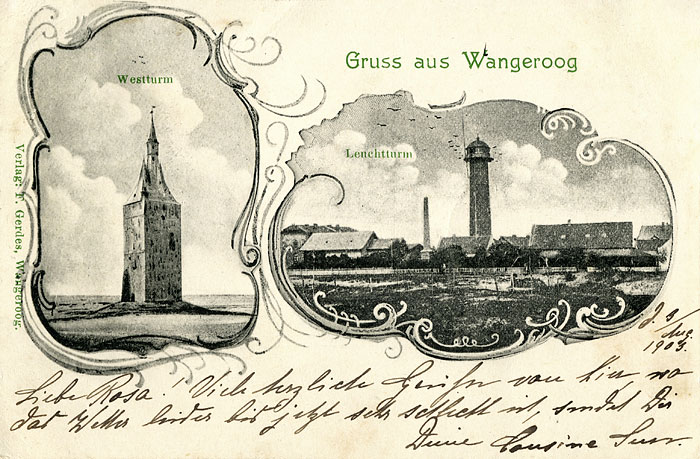 Gruss aus Wangeroog
Westturm
Leuchtturm
Verlag: F. Gerdes, Wangeroog.
d. 9
Aug.
1903.
Liebe Rosa! Viele herzliche Grüße von hier, wo
das Wetter leider bis jetzt sehr schlecht ist, sendet Dir
Deine Cousine